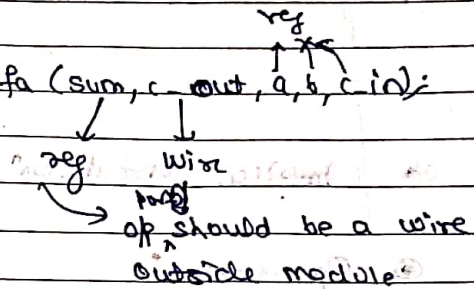 reg
fa (sum, c_out, a, b, c_in);
reg wire
port
o/p should be a wire
outside module.